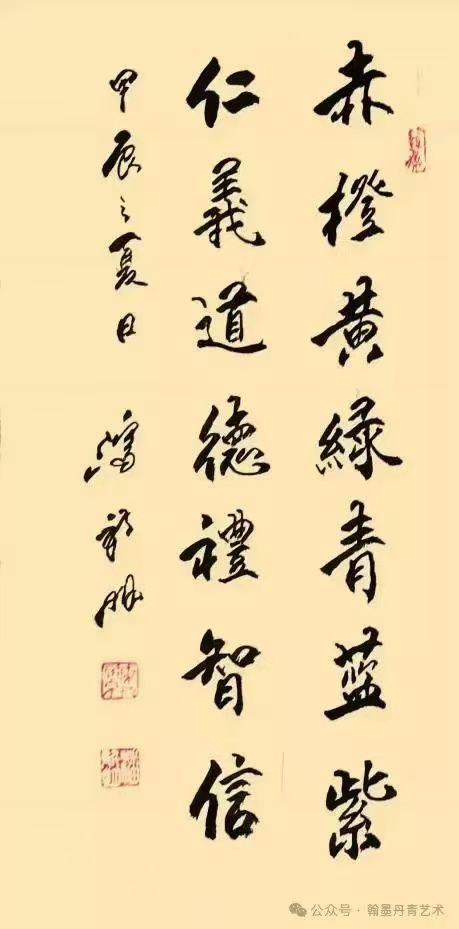 赤橙黄緑青藍紫
仁義道德禮智信
甲辰之夏日
公众号·翰墨丹青艺术